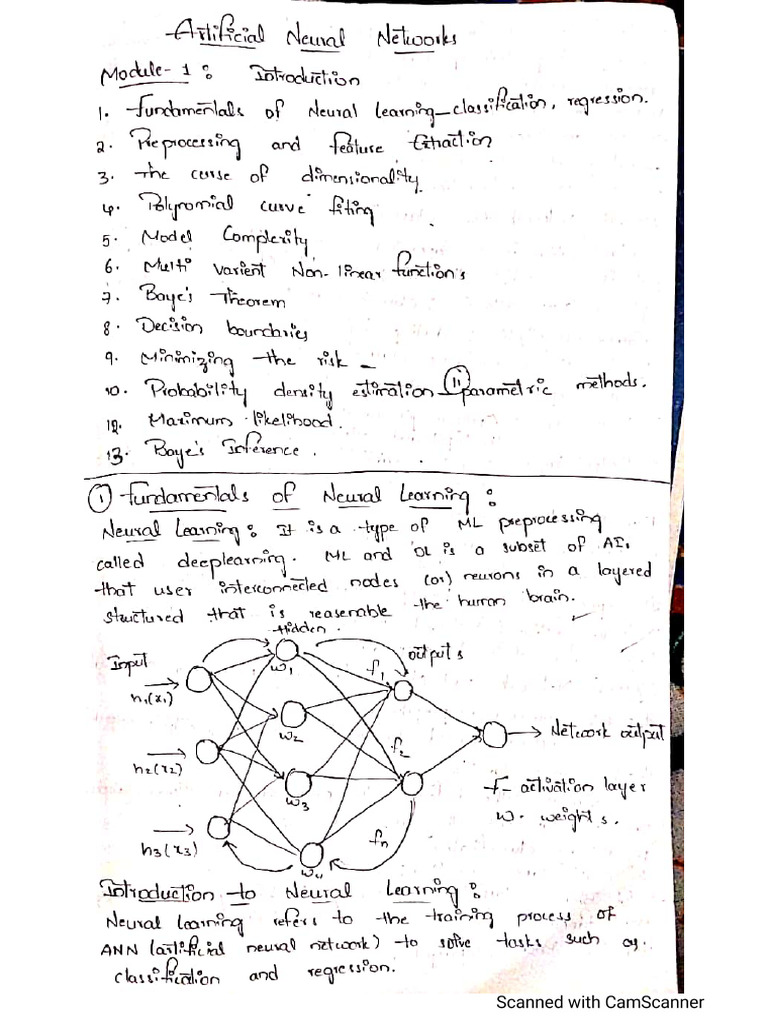 Artificial Neural Networks
Module-1: Introduction
1. Fundamentals of Neural Learning-classification, regression.
2. Preprocessing and feature Extraction
3. The curse of dimensionality
4. Polynomial curve fiting
5. Model Complexity
6. Multi varient Non-linear functions
7. Baye's Theorem
8. Decision boundaries
9. Minimizing the risk -
10. Probability density estimation 11 parametric methods.
12. Maximum likelihood.
13. Baye's Inference.
1 Fundamentals of Neural Learning:
Neural Learning: It is a type of ML preprocessing
called deeplearning. ML and DL is a subset of AI,
that user interconnected nodes (or) neurons in a layered
structured that is reasenable the human brain.
Hidden.
Input
outputs
w1
f1
h1(x1)
w2
Network output
f2
h2(x2)
w3
f- activation layer
w. weights.
h3(x3)
fn
w4
Introduction to Neural Learning:
Neural learning refers to the training process of
ANN (artificial neural network) to solve tasks such as.
classification and regression.
Scanned with CamScanner